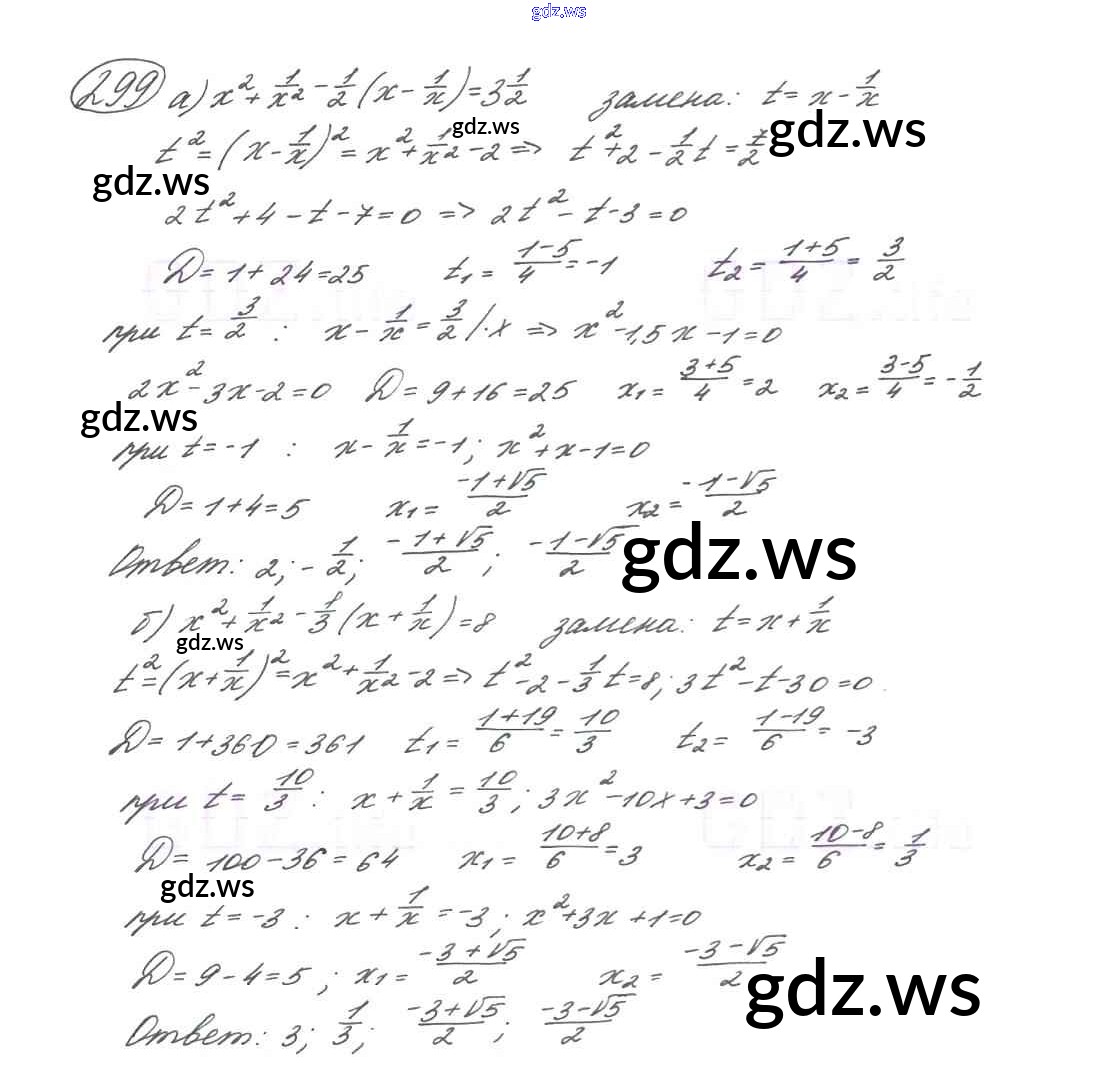 gdz.ws
299 а) x² + 1/x² - 1/2 (x - 1/x) = 3 1/2 замена: t = x - 1/x
gdz.ws gdz.ws
t² = (x - 1/x)² = x² + 1/x² - 2 => t² + 2 - 1/2 t = 7/2
gdz.ws
2t² + 4 - t - 7 = 0 => 2t² - t - 3 = 0
D = 1 + 24 = 25 t₁ = (1-5)/4 = -1 t₂ = (1+5)/4 = 3/2
при t = 3/2 : x - 1/x = 3/2 /·x => x² - 1,5x - 1 = 0
2x² - 3x - 2 = 0 D = 9 + 16 = 25 x₁ = (3+5)/4 = 2 x₂ = (3-5)/4 = -1/2
gdz.ws
при t = -1 : x - 1/x = -1; x² + x - 1 = 0
D = 1 + 4 = 5 x₁ = (-1+√5)/2 x₂ = (-1-√5)/2
Ответ: 2; -1/2; (-1+√5)/2; (-1-√5)/2
gdz.ws
б) x² + 1/x² - 1/3 (x + 1/x) = 8 замена: t = x + 1/x
gdz.ws
t² = (x + 1/x)² = x² + 1/x² - 2 => t² - 2 - 1/3 t = 8; 3t² - t - 30 = 0
D = 1 + 360 = 361 t₁ = (1+19)/6 = 10/3 t₂ = (1-19)/6 = -3
при t = 10/3 : x + 1/x = 10/3; 3x² - 10x + 3 = 0
D = 100 - 36 = 64 x₁ = (10+8)/6 = 3 x₂ = (10-8)/6 = 1/3
gdz.ws
при t = -3 : x + 1/x = -3; x² + 3x + 1 = 0
D = 9 - 4 = 5; x₁ = (-3+√5)/2 x₂ = (-3-√5)/2
gdz.ws
Ответ: 3; 1/3; (-3+√5)/2; (-3-√5)/2